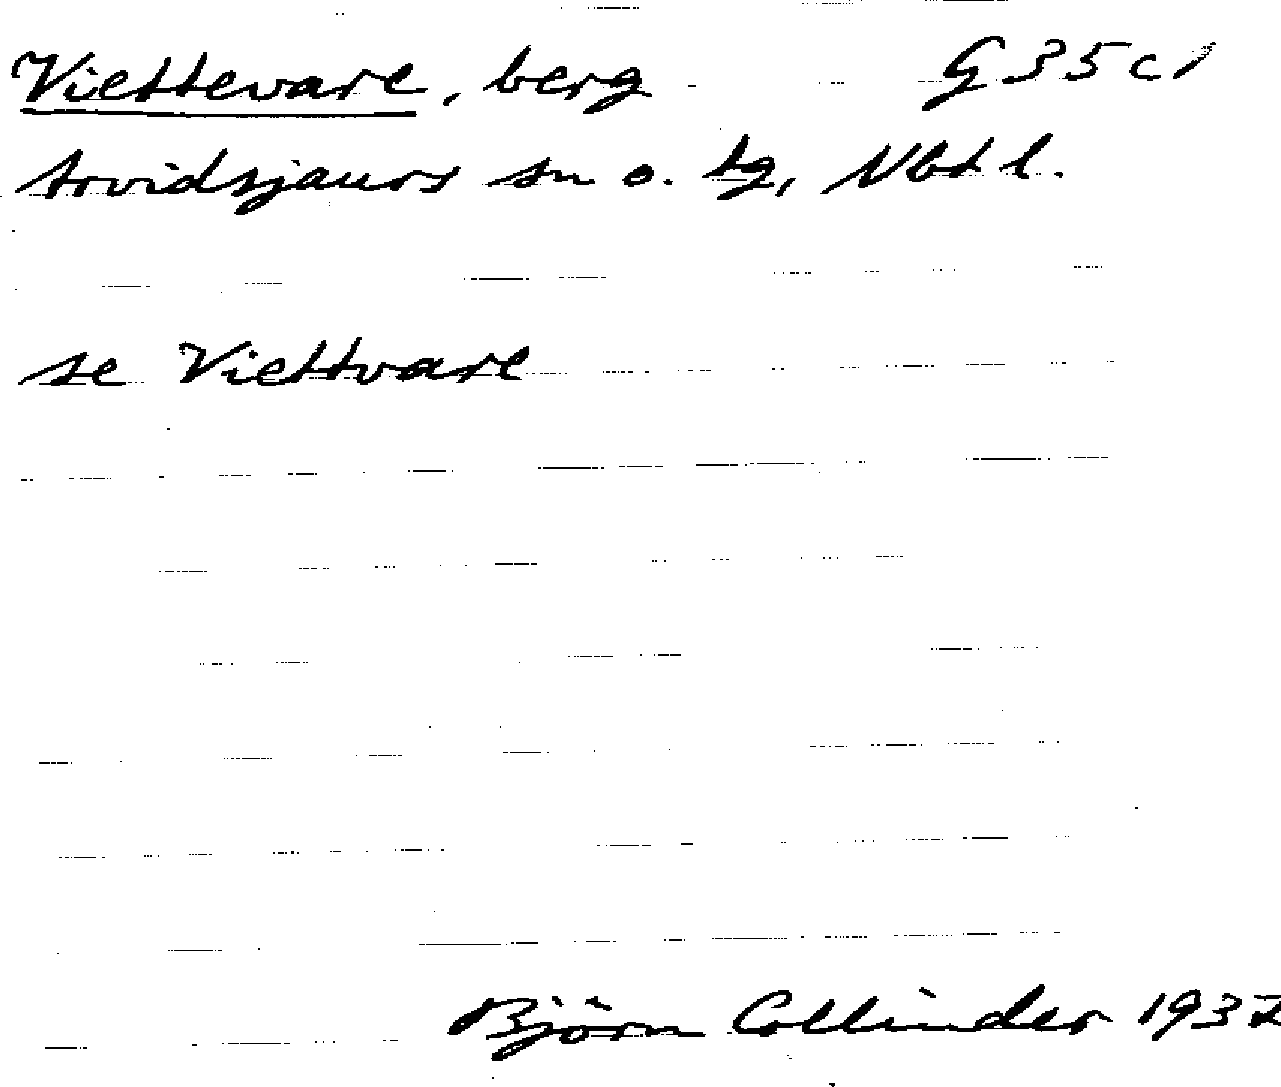 Vietteware, berg G 35 c 1
Arvidsjaurs sn o. tg, Nbtl.
se Viettvare
Björn Collinder 1932